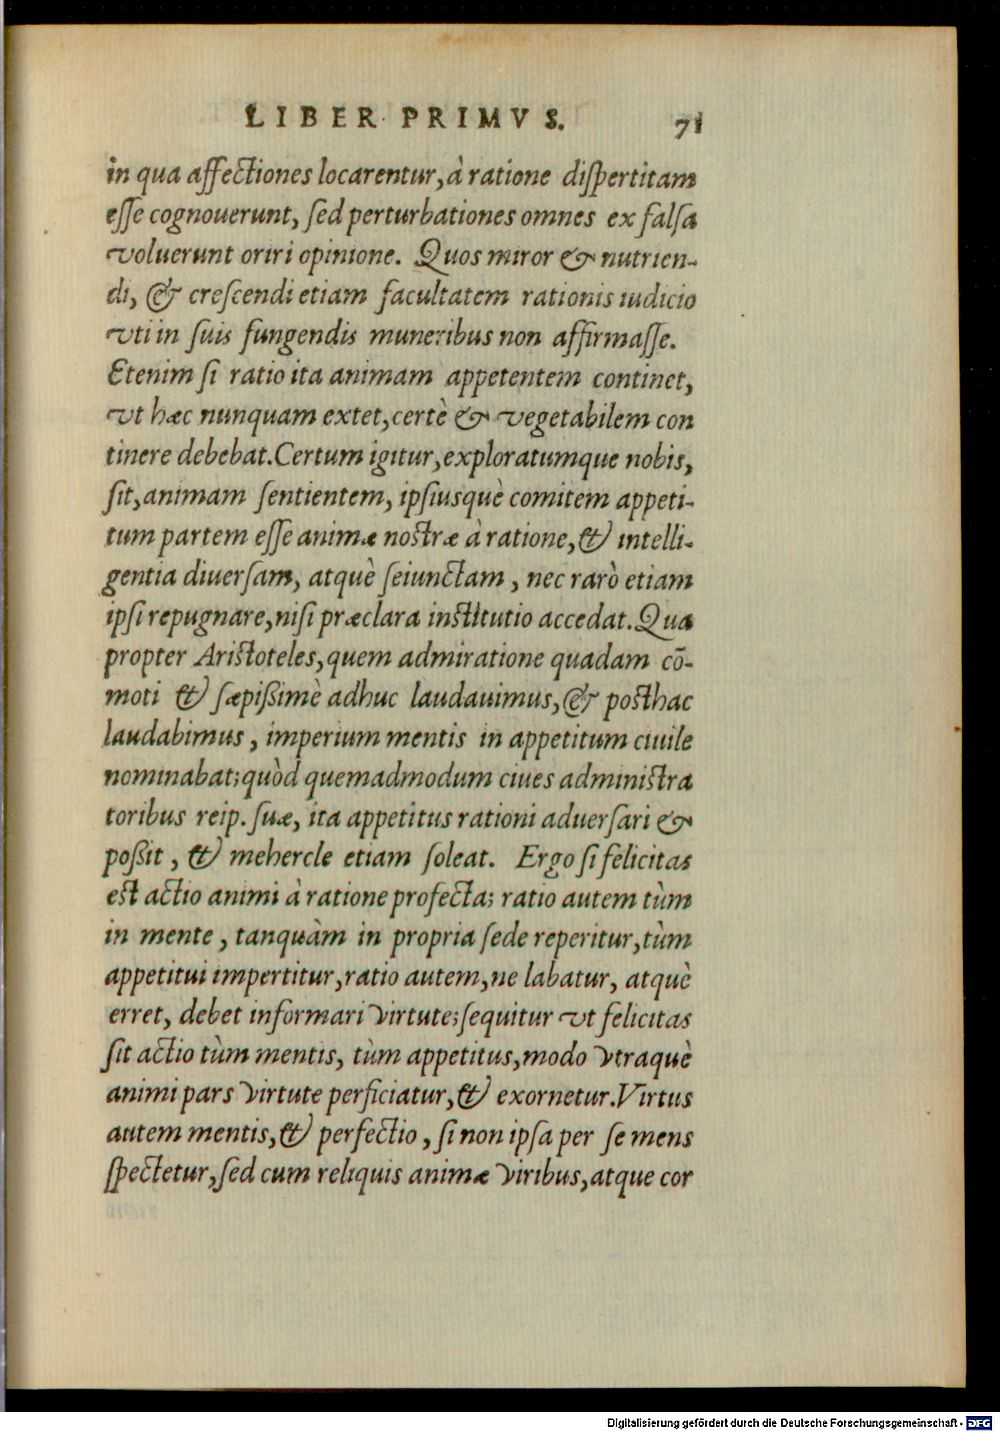 LIBER PRIMVS. 71
in qua affectiones locarentur, à ratione dispertitam
esse cognouerunt, sed perturbationes omnes ex falsa
voluerunt oriri opinione. Quos miror & nutrien-
di, & crescendi etiam facultatem rationis iudicio
vti in suis fungendis muneribus non affirmasse.
Etenim si ratio ita animam appetentem continet,
vt hæc nunquam extet, certè & vegetabilem con
tinere debebat. Certum igitur, exploratumque nobis,
sit, animam sentientem, ipsiusquè comitem appeti-
tum partem esse animæ nostræ à ratione, & intelli-
gentia diuersam, atquè seiunctam, nec rarò etiam
ipsi repugnare, nisi præclara institutio accedat. Qua
propter Aristoteles, quem admiratione quadam cō-
moti & sæpißimè adhuc laudauimus, & posthac
laudabimus, imperium mentis in appetitum ciuile
nominabat; quòd quemadmodum ciues administra
toribus reip. suæ, ita appetitus rationi aduersari &
poßit, & mehercle etiam soleat. Ergo si felicitas
est actio animi à ratione profecta; ratio autem tùm
in mente, tanquàm in propria sede reperitur, tùm
appetitui impertitur, ratio autem, ne labatur, atquè
erret, debet informari virtute; sequitur vt felicitas
sit actio tùm mentis, tùm appetitus, modo vtraquè
animi pars virtute perficiatur, & exornetur. Virtus
autem mentis, & perfectio, si non ipsa per se mens
spectetur, sed cum reliquis animæ viribus, atque cor
Digitalisierung gefördert durch die Deutsche Forschungsgemeinschaft - DFG